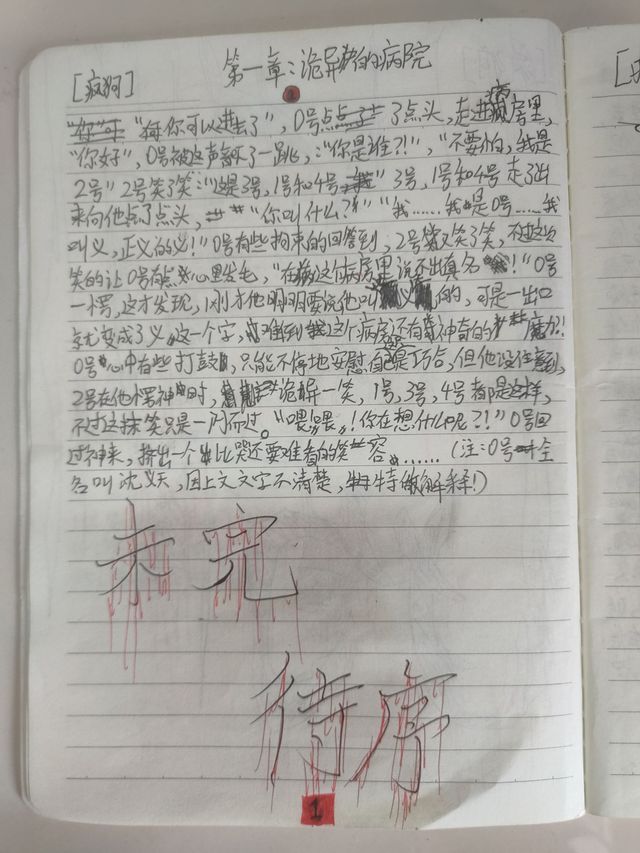 [疯狗]
第一章：诡异的病院
"你可以进去了"，0号点点了点头，走进病房里，
"你好"，0号被这声吓了一跳，："你是谁？！"，"不要怕，我是
2号"2号笑了笑："这是3号，1号和4号"3号，1号和4号走了出
来向他点了点头，"你叫什么？""我……我是0号……我
叫义，正义的义！"0号有些拘束的回答到，2号又笑了笑，不过这次
笑的让0号有点心里发毛，"在这个病房里说不出真名！"0号
一愣，这才发现，刚才他明明要说他叫的，可是一出口
就变成了义这一个字，难到这个病房还有神奇的魔力？！
0号心中有些打鼓，只能不停地安慰自己是巧合，但他没注意到，
2号在他愣神时，诡异一笑，1号，3号，4号都是这样，
不过这抹笑只是一闪而过。"喂！喂！你在想什么呢？！"0号回
过神来，挤出一个比哭还要难看的笑容……（注：0号全
名叫沈义天，因上文文字不清楚，特做解释！）
未完
待序
1